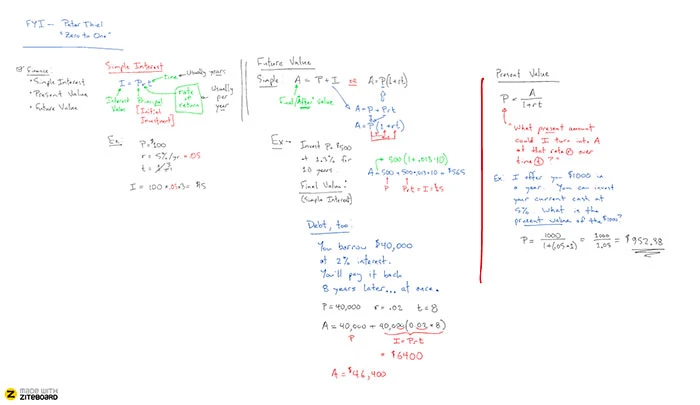 FYI — Peter Thiel
"Zero to One"
Finance:
• Simple Interest
• Present Value
• Future Value
Simple Interest
I = P·r·t
time
Usually years
Interest Value
Principal
[Initial Investment]
rate of return
Usually per year
Ex.
P = $100
r = 5%/yr = .05
I = 100 · .05 · 3 = $15
Future Value
Simple: A = P + I or A = P(1+rt)
Final/"After" value
A = P + Prt
A = P(1 + rt)
Ex — Invest P = $500
at 1.3% for
10 years.
Final Value:
(Simple Interest)
500(1 + .013·10)
A = 500 + 500·.013·10 = $565
P Prt = I = $65
Debt, too:
You borrow $40,000
at 2% interest.
You'll pay it back
8 years later... at once.
P = 40,000 r = .02 t = 8
A = 40,000 + 40,000(0.02 * 8)
P I = Prt
= $6400
A = $46,400
Present Value
P = A / 1+rt
"What present amount
could I turn into A
at that rate r over
time t?"
Ex: I offer you $1000 in
a year. You can invest
your current cash at
5%. What is the
present value of the $1000?
P = 1000 / (1+(.05*1)) = 1000 / 1.05 = $952.38
MADE WITH
ZITEBOARD